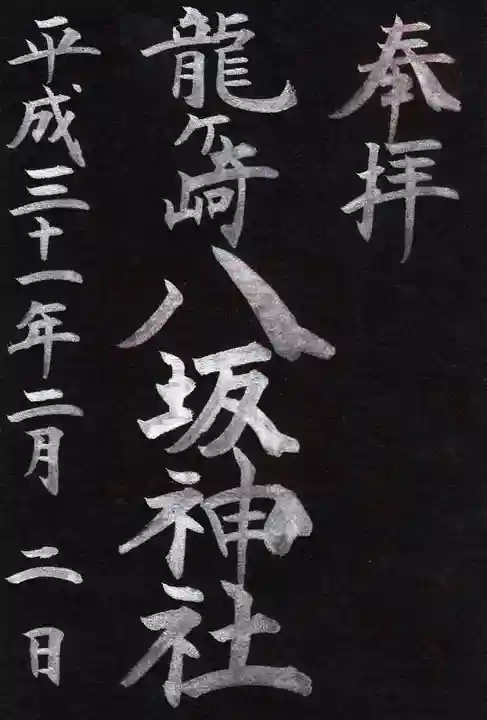 奉拝
龍ヶ崎八坂神社
平成三十一年二月二日